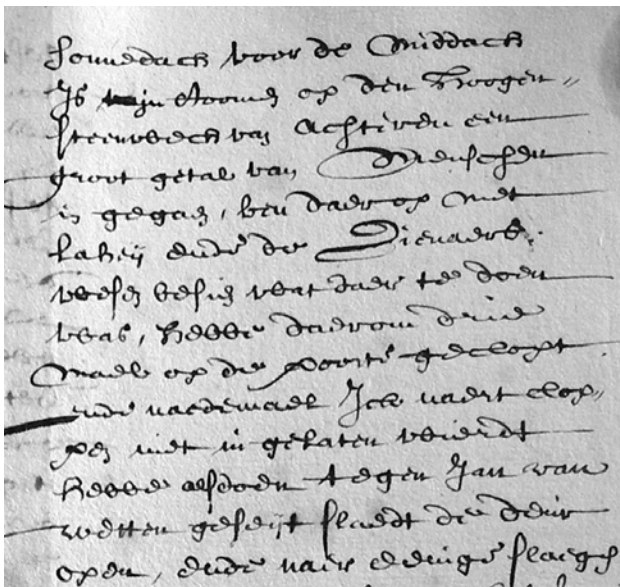 Sonnedach voor de Middach
Is in stooms op den Hoogen
steenwech van Achteren een
groot getal van Menschen
in gegaen, ben daer op met
Lakeij ende de Dienaers
wesen besien wat daer te doen
was, hebbe daerom drie
mael op de poorte geclopt
ende naedemael Ick naert clop,,
pen niet in gelaten wierdt
hebbe alsdoen tegen Jan van
wetten geseijt slaedt de deur
open, ende naer eenige slaegen